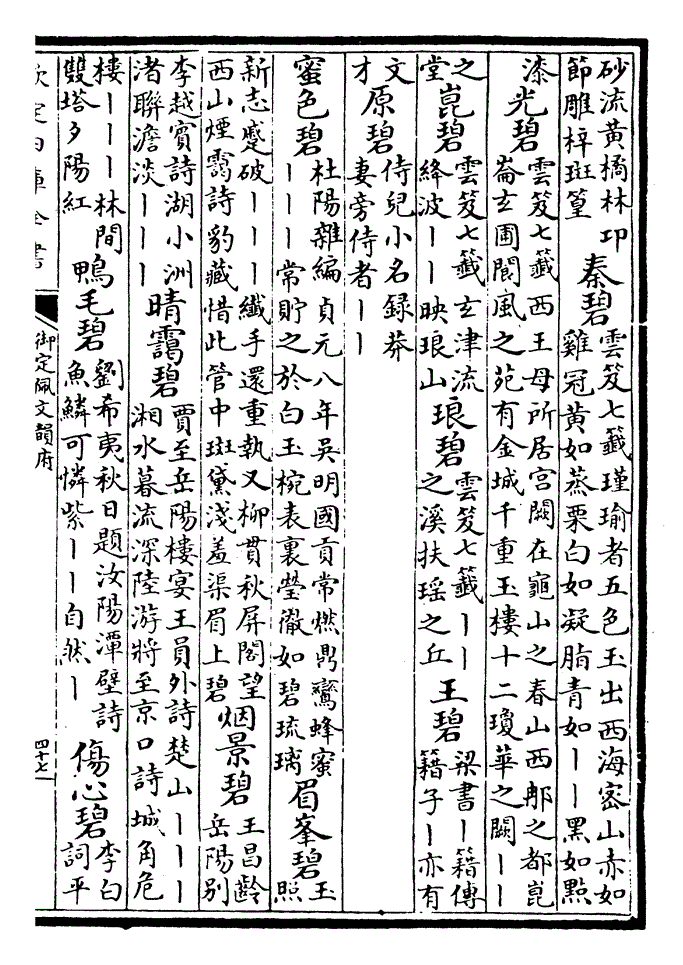 砂流黃橘林卭
節雕梓斑篁
秦碧
雲笈七籤瑾瑜者五色玉出西海密山赤如
雞冠黃如蒸栗白如凝脂青如丨丨黑如點
漆
光碧
雲笈七籤西王母所居宫闕在龜山之春山西邮之都崑
崙玄圃閬風之苑有金城千重玉樓十二瓊華之闕丨丨
之
堂
崑碧
雲笈七籤玄津流
絳波丨丨映琅山
琅碧
雲笈七籤丨丨
之溪扶瑶之丘
王碧
梁書丨籍傳
籍子丨亦有
文
才
原碧
侍兒小名録莽
妻旁侍者丨丨
蜜色碧
杜陽雜編貞元八年吳明國貢常燃鼎鸞蜂蜜
丨丨丨常貯之於白玉椀表裏瑩徹如碧琉璃
眉峯碧
玉
照
新志蹙破丨丨丨纖手還重執又柳貫秋屏閣望
西山煙靄詩豹藏惜此管中斑黛淺羞渠眉上碧
烟景碧
王昌齡
岳陽别
李越賓詩湖小洲
渚聯澹淡丨丨丨
晴靄碧
賈至岳陽樓宴王員外詩楚山丨丨丨
湘水暮流深陸游將至京口詩城角危
樓丨丨丨林間
雙塔夕陽紅
鴨毛碧
劉希夷秋日題汝陽潭壁詩
魚鱗可憐紫丨丨自然丨
傷心碧
李白
詞平
欽定四庫全書
御定佩文韻府
四十七